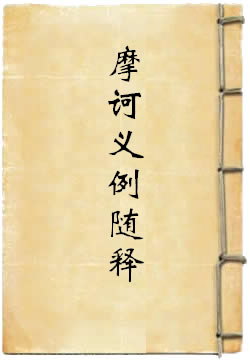 摩诃义例随释